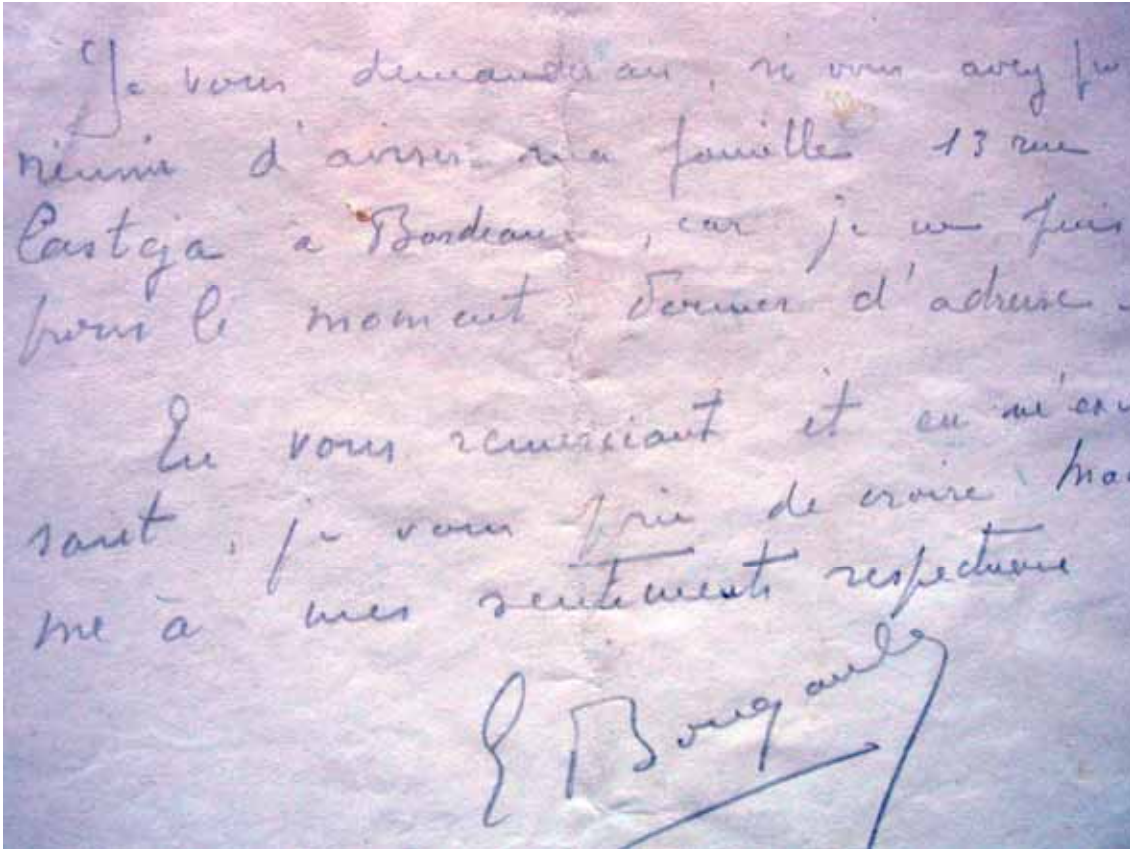 Je vous demanderai, si vous avez pu
réussir d'aviser ma famille 13 rue
Casteja à Bordeaux, car je ne puis
pour le moment donner d'adresse.
En vous remerciant et en m'excu
sant, je vous prie de croire Mada
me à mes sentiments respectueux
E Bougault